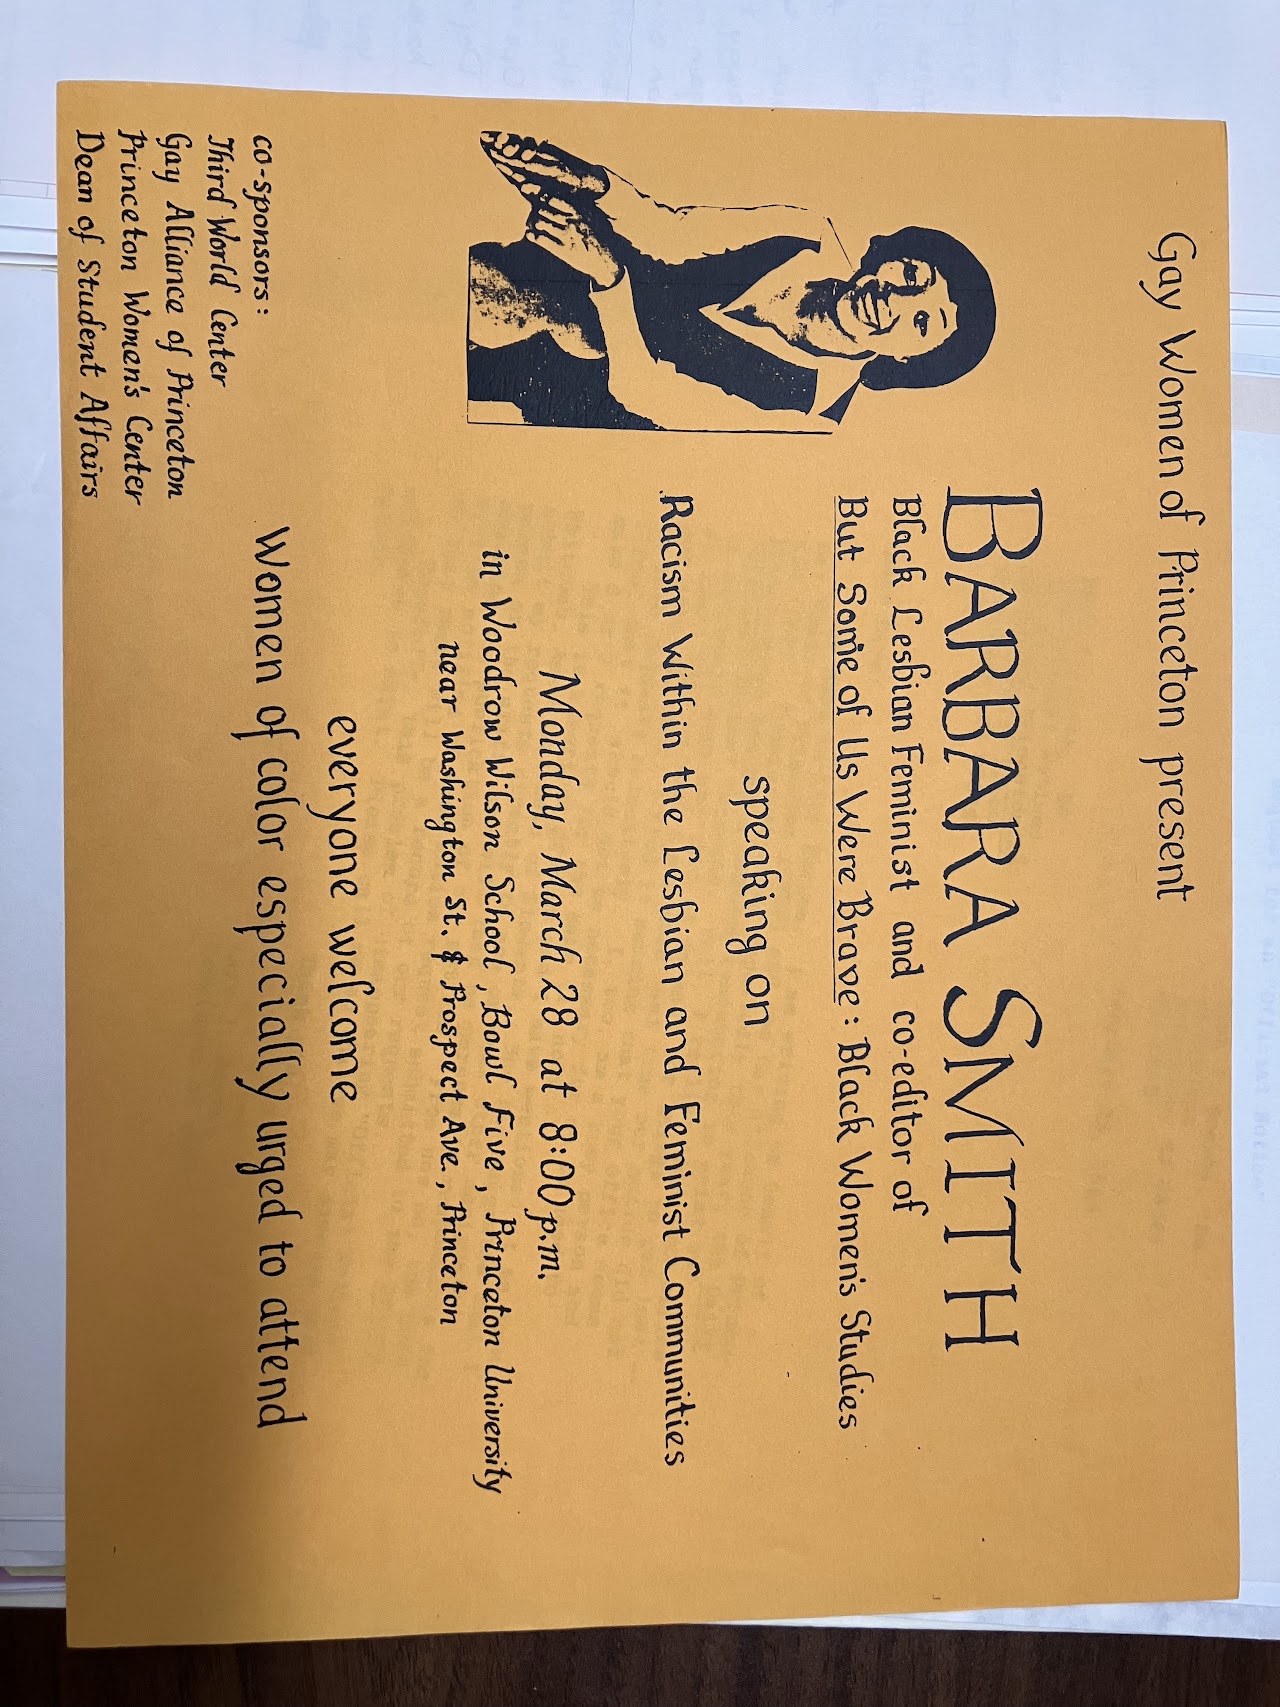 Gay Women of Princeton present
BARBARA SMITH
Black Lesbian Feminist and co-editor of
But Some of Us Were Brave: Black Women's Studies
speaking on
Racism Within the Lesbian and Feminist Communities
Monday, March 28 at 8:00 p.m.
in Woodrow Wilson School, Bowl Five, Princeton University
near Washington St. & Prospect Ave., Princeton
everyone welcome
Women of color especially urged to attend
co-sponsors:
Third World Center
Gay Alliance of Princeton
Princeton Women's Center
Dean of Student Affairs